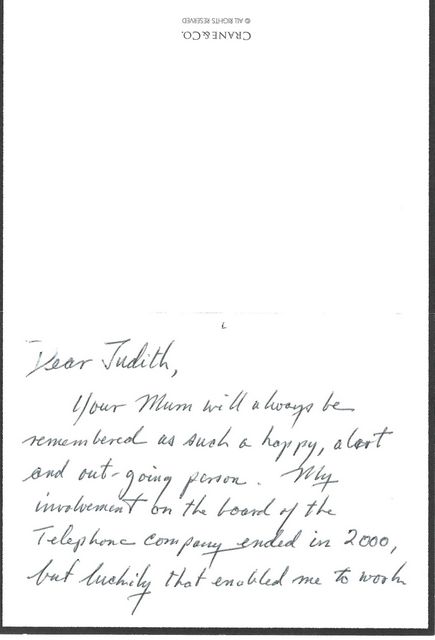 © ALL RIGHTS RESERVED
CRANE & CO.
Dear Judith,
Your Mum will always be
remembered as such a happy, alert
and out-going person. My
involvement on the board of the
Telephone company ended in 2000,
but luckily that enabled me to work